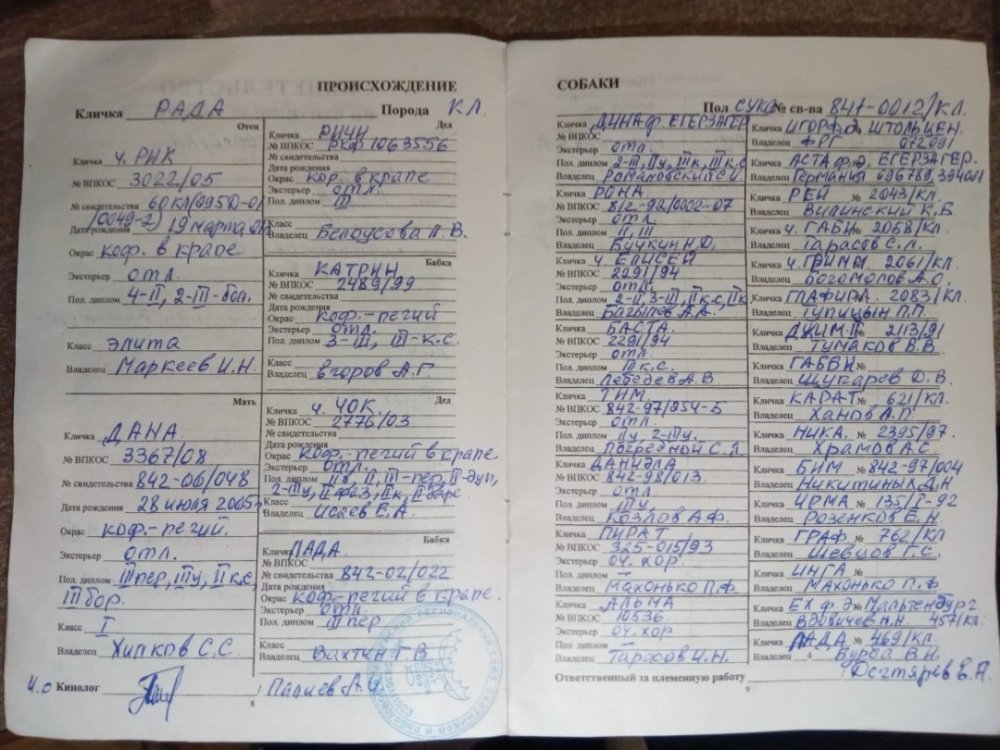 ПРОИСХОЖДЕНИЕ
Кличка РАДА Порода КЛ
Отец
Кличка ч. РИК
№ ВПКОС 3022/05
№ свидетельства 60КЛ(095D-01
/0049-2)
Дата рождения 19 марта
Окрас коф. в крапе
Экстерьер отл.
Пол. диплом 4-II, 2-III-бол.
Класс элита
Владелец Маркеев И.Н.
Мать
Кличка ДАНА.
№ ВПКОС 3367/08
№ свидетельства 842-06/048
Дата рождения 28 июля 2005г
Окрас коф.-пегий.
Экстерьер отл.
Пол. диплом III пер, III у, II к.с,
III бор.
Класс I
Владелец Хилков С.С.
Дед
Кличка РИЧИ
№ ВПКОС РКФ 1063556
№ свидетельства
Дата рождения
Окрас кор. в крапе
Экстерьер отл.
Пол. диплом III
Класс
Владелец Белоусова Л.В.
Бабка
Кличка КАТРИН
№ ВПКОС 2489/99
№ свидетельства
Дата рождения
Окрас коф.-пегий
Экстерьер отл.
Пол. диплом 3-III, III-к.с.
Класс
Владелец Егоров А.Г.
Дед
Кличка ч. ЧОК.
№ ВПКОС 2776/03
№ свидетельства
Дата рождения
Окрас коф-пегий в крапе
Экстерьер отл.
Пол. диплом II в, II, III-пер, II-дуп,
2-III у, II фаз, II к, II барс.
Класс
Владелец Исаев Е.А.
Бабка
Кличка ЛАДА.
№ ВПКОС
№ свидетельства 842-02/022
Дата рождения
Окрас коф-пегий в крапе.
Экстерьер отл.
Пол. диплом III пер
Класс
Владелец Вахтин Г.В
И.о Кинолог Палиев А.И.
8
СОБАКИ
Пол СУКА № св-ва 847-0012/КЛ.
Кличка ДИНАФ. ЕГЕРЗАГЕР
№ ВПКОС
Экстерьер отл.
Пол. диплом 2-III, II у, III к, III к.с
Владелец Романовский С.И
Кличка РОНА
№ ВПКОС 812-92/0902-07
Экстерьер отл
Пол. диплом II, III
Владелец Бучкин Н.D.
Кличка ч. ЕЛИСЕЙ
№ ВПКОС 2291/94
Экстерьер отл.
Пол. диплом 2-II, 3-III, II к.с, II к
Владелец Багылев А.А.
Кличка БАСТА.
№ ВПКОС 2291/94
Экстерьер отл.
Пол. диплом III к.с.
Владелец Лебедев А.В
Кличка ТИМ.
№ ВПКОС 842-97/954-5
Экстерьер отл.
Пол. диплом II у, 2-III у.
Владелец Посредной С.Я.
Кличка ДАНИЭЛА
№ ВПКОС 842-98/013.
Экстерьер отл.
Пол. диплом III у.
Владелец КОЗЛОВ А.Ф.
Кличка ПИРАТ
№ ВПКОС 325-015/93
Экстерьер оч. хор.
Пол. диплом —
Владелец Махонько П.Ф.
Кличка АЛЬМА
№ ВПКОС 10536.
Экстерьер оч. хор
Пол. диплом —
Владелец Тарасов И.Н.
Кличка ИГОРФ.Д. ШТОЛЬЦЕН.
Владелец ФРГ 072091
Кличка АСТА ф.Д. ЕГЕРЗАГЕР.
Владелец Германия 696789, 394001
Кличка РЕЙ № 2043/КЛ.
Владелец Вилинский К.Б
Кличка ч. ГАБИ № 2058/КЛ.
Владелец Тарасов С.Л.
Кличка ч. ГРИММ. № 2061/КЛ.
Владелец Богомолов А.О.
Кличка ГЛАФИРА. № 2083/КЛ.
Владелец ТУПИЦЫН П.П.
Кличка ДЖИМ-II № 2113/91
Владелец Тумаков В.В.
Кличка ГАБВИ №
Владелец Щукарев D.В.
Кличка КАРАТ № 621/КЛ.
Владелец Ханов А.П.
Кличка НИКА. № 2395/97.
Владелец Храмов А.С.
Кличка БИМ № 842-97/004
Владелец Никитиных Д.Н
Кличка ИРМА № 135/Г-92
Владелец Розенков Е.Н.
Кличка ГРАФ № 762/КЛ
Владелец Шевцов Г.С.
Кличка ИНГА. №
Владелец Махонько П.Ф
Кличка ЕХ ф.Д № Мальтендург.
Владелец Вдовичев Н.Н. 457/КЛ.
Кличка ЛАДА № 469/КЛ.
Владелец Бурба В.Н.
Ответственный за племенную работу Дегтярев Е.А.
9